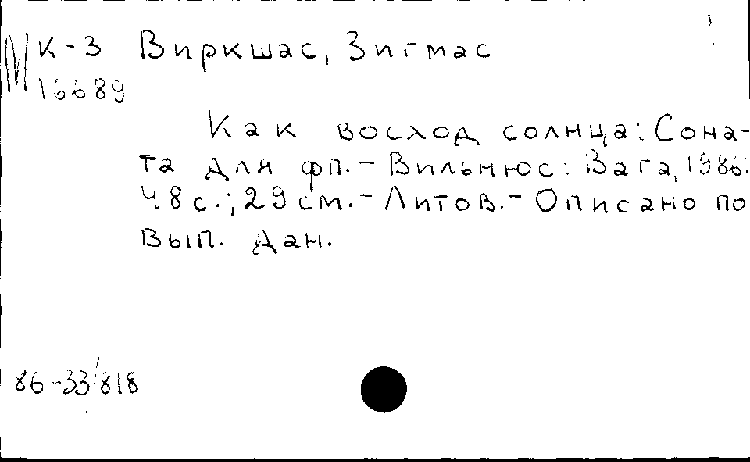 М К-3 Виркшас, Зигмас
16689
Как восход солнца: Сона-
та для фп. - Вильнюс: Вага, 1986.
48 с.; 29 см. - Литов. - Описано по
вып. дан.
86-33/818